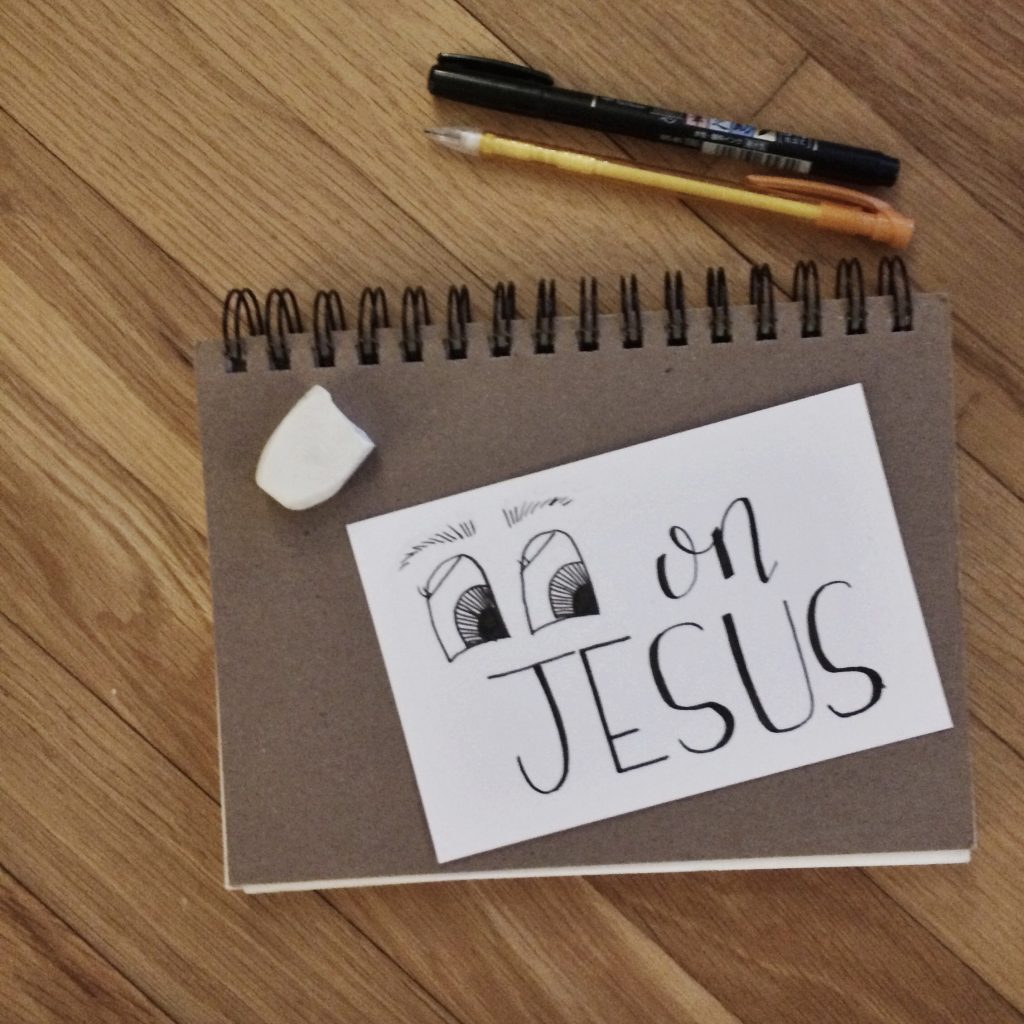 on
JESUS